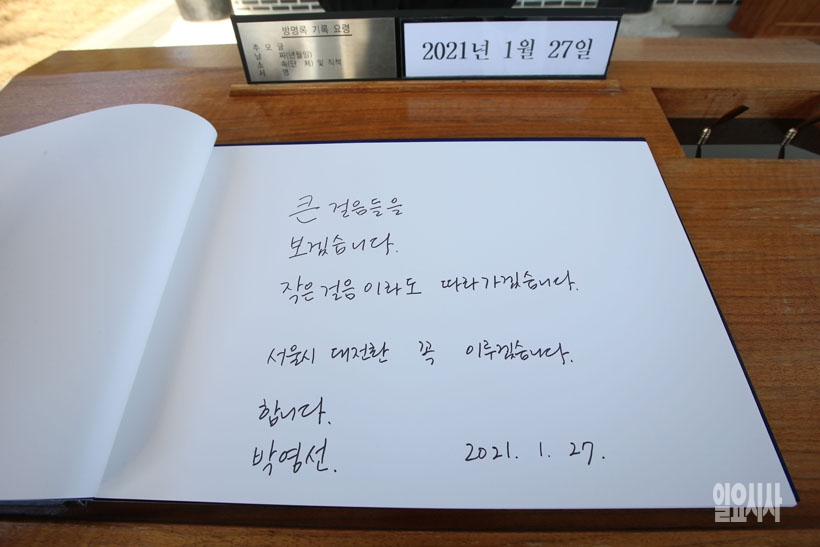 방명록 기록 요령
추 모 글
날 짜(년월일)
소 속(단 체) 및 직책
서 명
2021년 1월 27일
큰 걸음들을
보겠습니다.
작은 걸음이라도 따라가겠습니다.
서울시 대전환 꼭 이루겠습니다.
합니다.
박영선. 2021. 1. 27.
일요시사